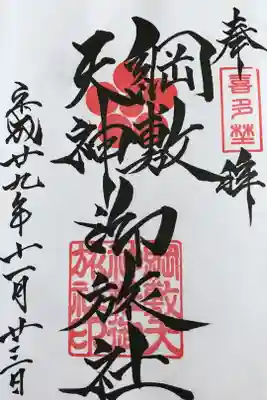 奉拝
喜多埜
綱敷
天神
御旅社
綱敷天
神御
旅社印
平成廿九年十一月廿三日